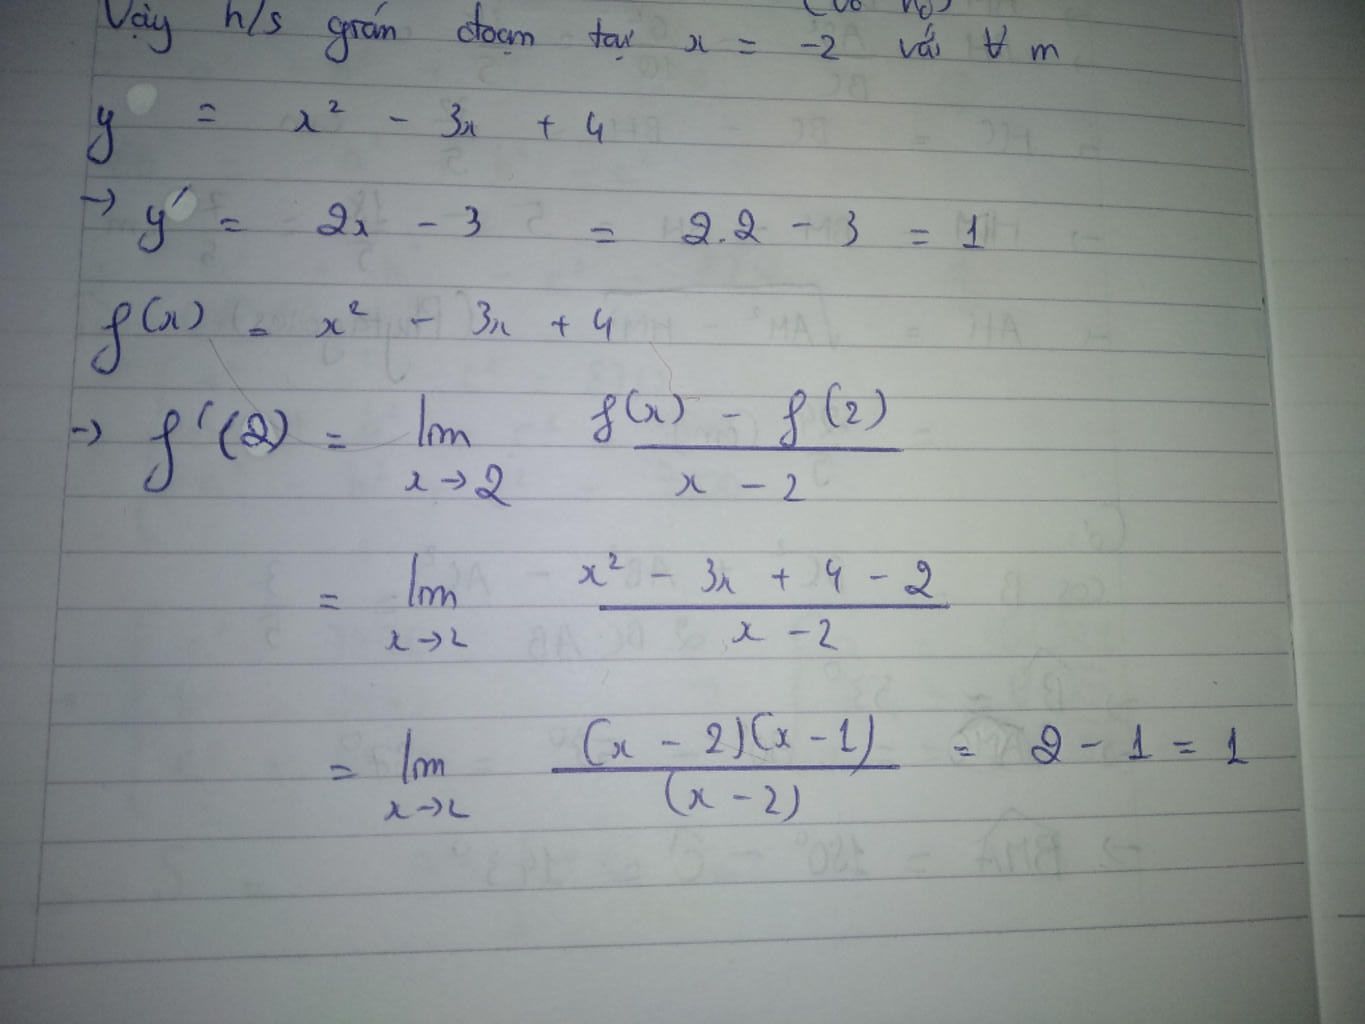 (vô n0)
Vậy h/s gián đoạn tại x = -2 với ∀ m
y = x² - 3x + 4
→ y' = 2x - 3 = 2.2 - 3 = 1
f(x) = x² - 3x + 4
→ f'(2) = lim f(x) - f(2)
x→2 x - 2
= lim x² - 3x + 4 - 2
x→2 x - 2
= lim (x - 2)(x - 1) = 2 - 1 = 1
x→2 (x - 2)